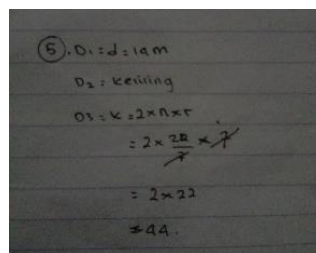 5. D1 = d = 1am
D2 = keliling
D3 = K = 2 × π × r
= 2 × 22/7 × 7
= 2 × 22
= 44.